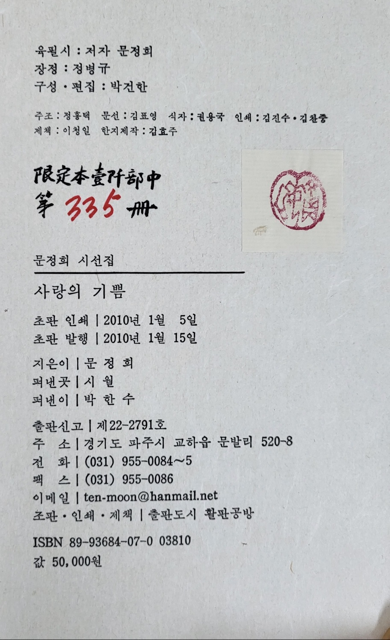 육필시 : 저자 문정희
장정 : 정병규
구성·편집 : 박건한
주조 : 정흥택 문선 : 김표영 식자 : 권용국 인쇄 : 김진수·김찬중
제책 : 이청일 한지제작 : 김효주
限定本壹阡部中
第 335 册
문정희 시선집
사랑의 기쁨
초판 인쇄 | 2010년 1월 5일
초판 발행 | 2010년 1월 15일
지은이 | 문 정 희
펴낸곳 | 시 월
펴낸이 | 박 한 수
출판신고 | 제22-2791호
주 소 | 경기도 파주시 교하읍 문발리 520-8
전 화 | (031) 955-0084~5
팩 스 | (031) 955-0086
이메일 | ten-moon@hanmail.net
조판·인쇄·제책 | 출판도시 활판공방
ISBN 89-93684-07-0 03810
값 50,000원